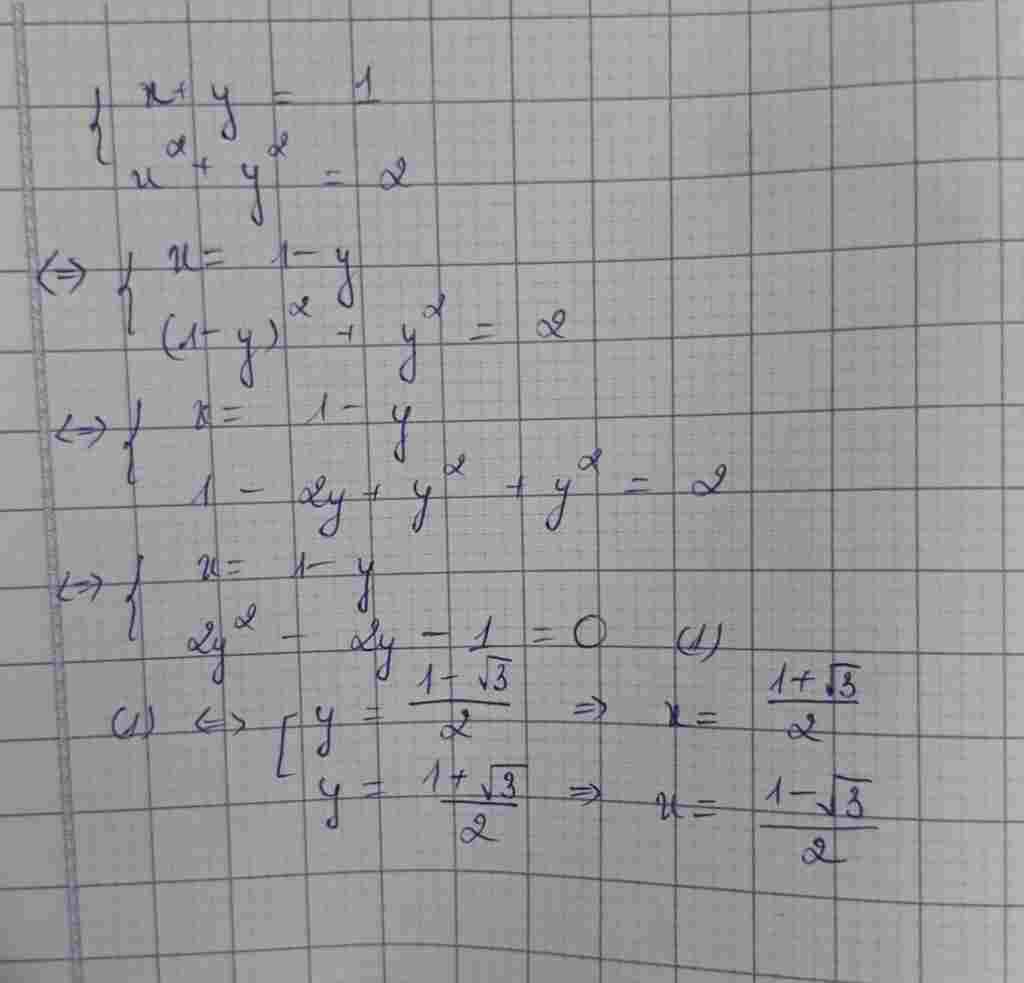 { x + y = 1
x² + y² = 2
⇔ { x = 1 - y
(1 - y)² + y² = 2
⇔ { x = 1 - y
1 - 2y + y² + y² = 2
⇔ { x = 1 - y
2y² - 2y - 1 = 0 (1)
(1) ⇔ [ y = (1 - √3)/2 ⇒ x = (1 + √3)/2
y = (1 + √3)/2 ⇒ x = (1 - √3)/2